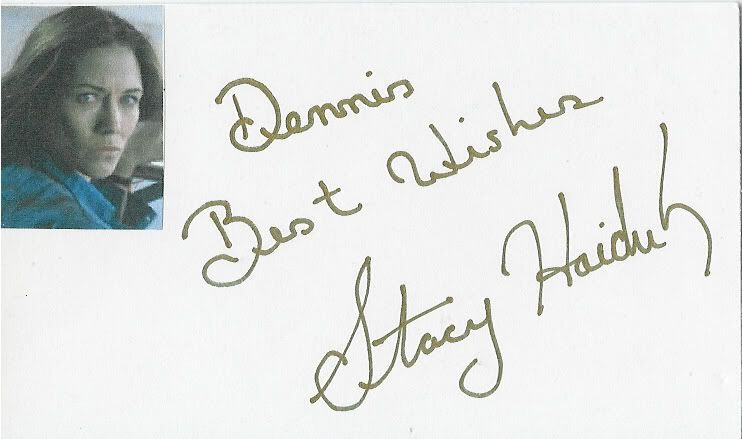 Dennis
Best Wishes
Stacy Haiduk